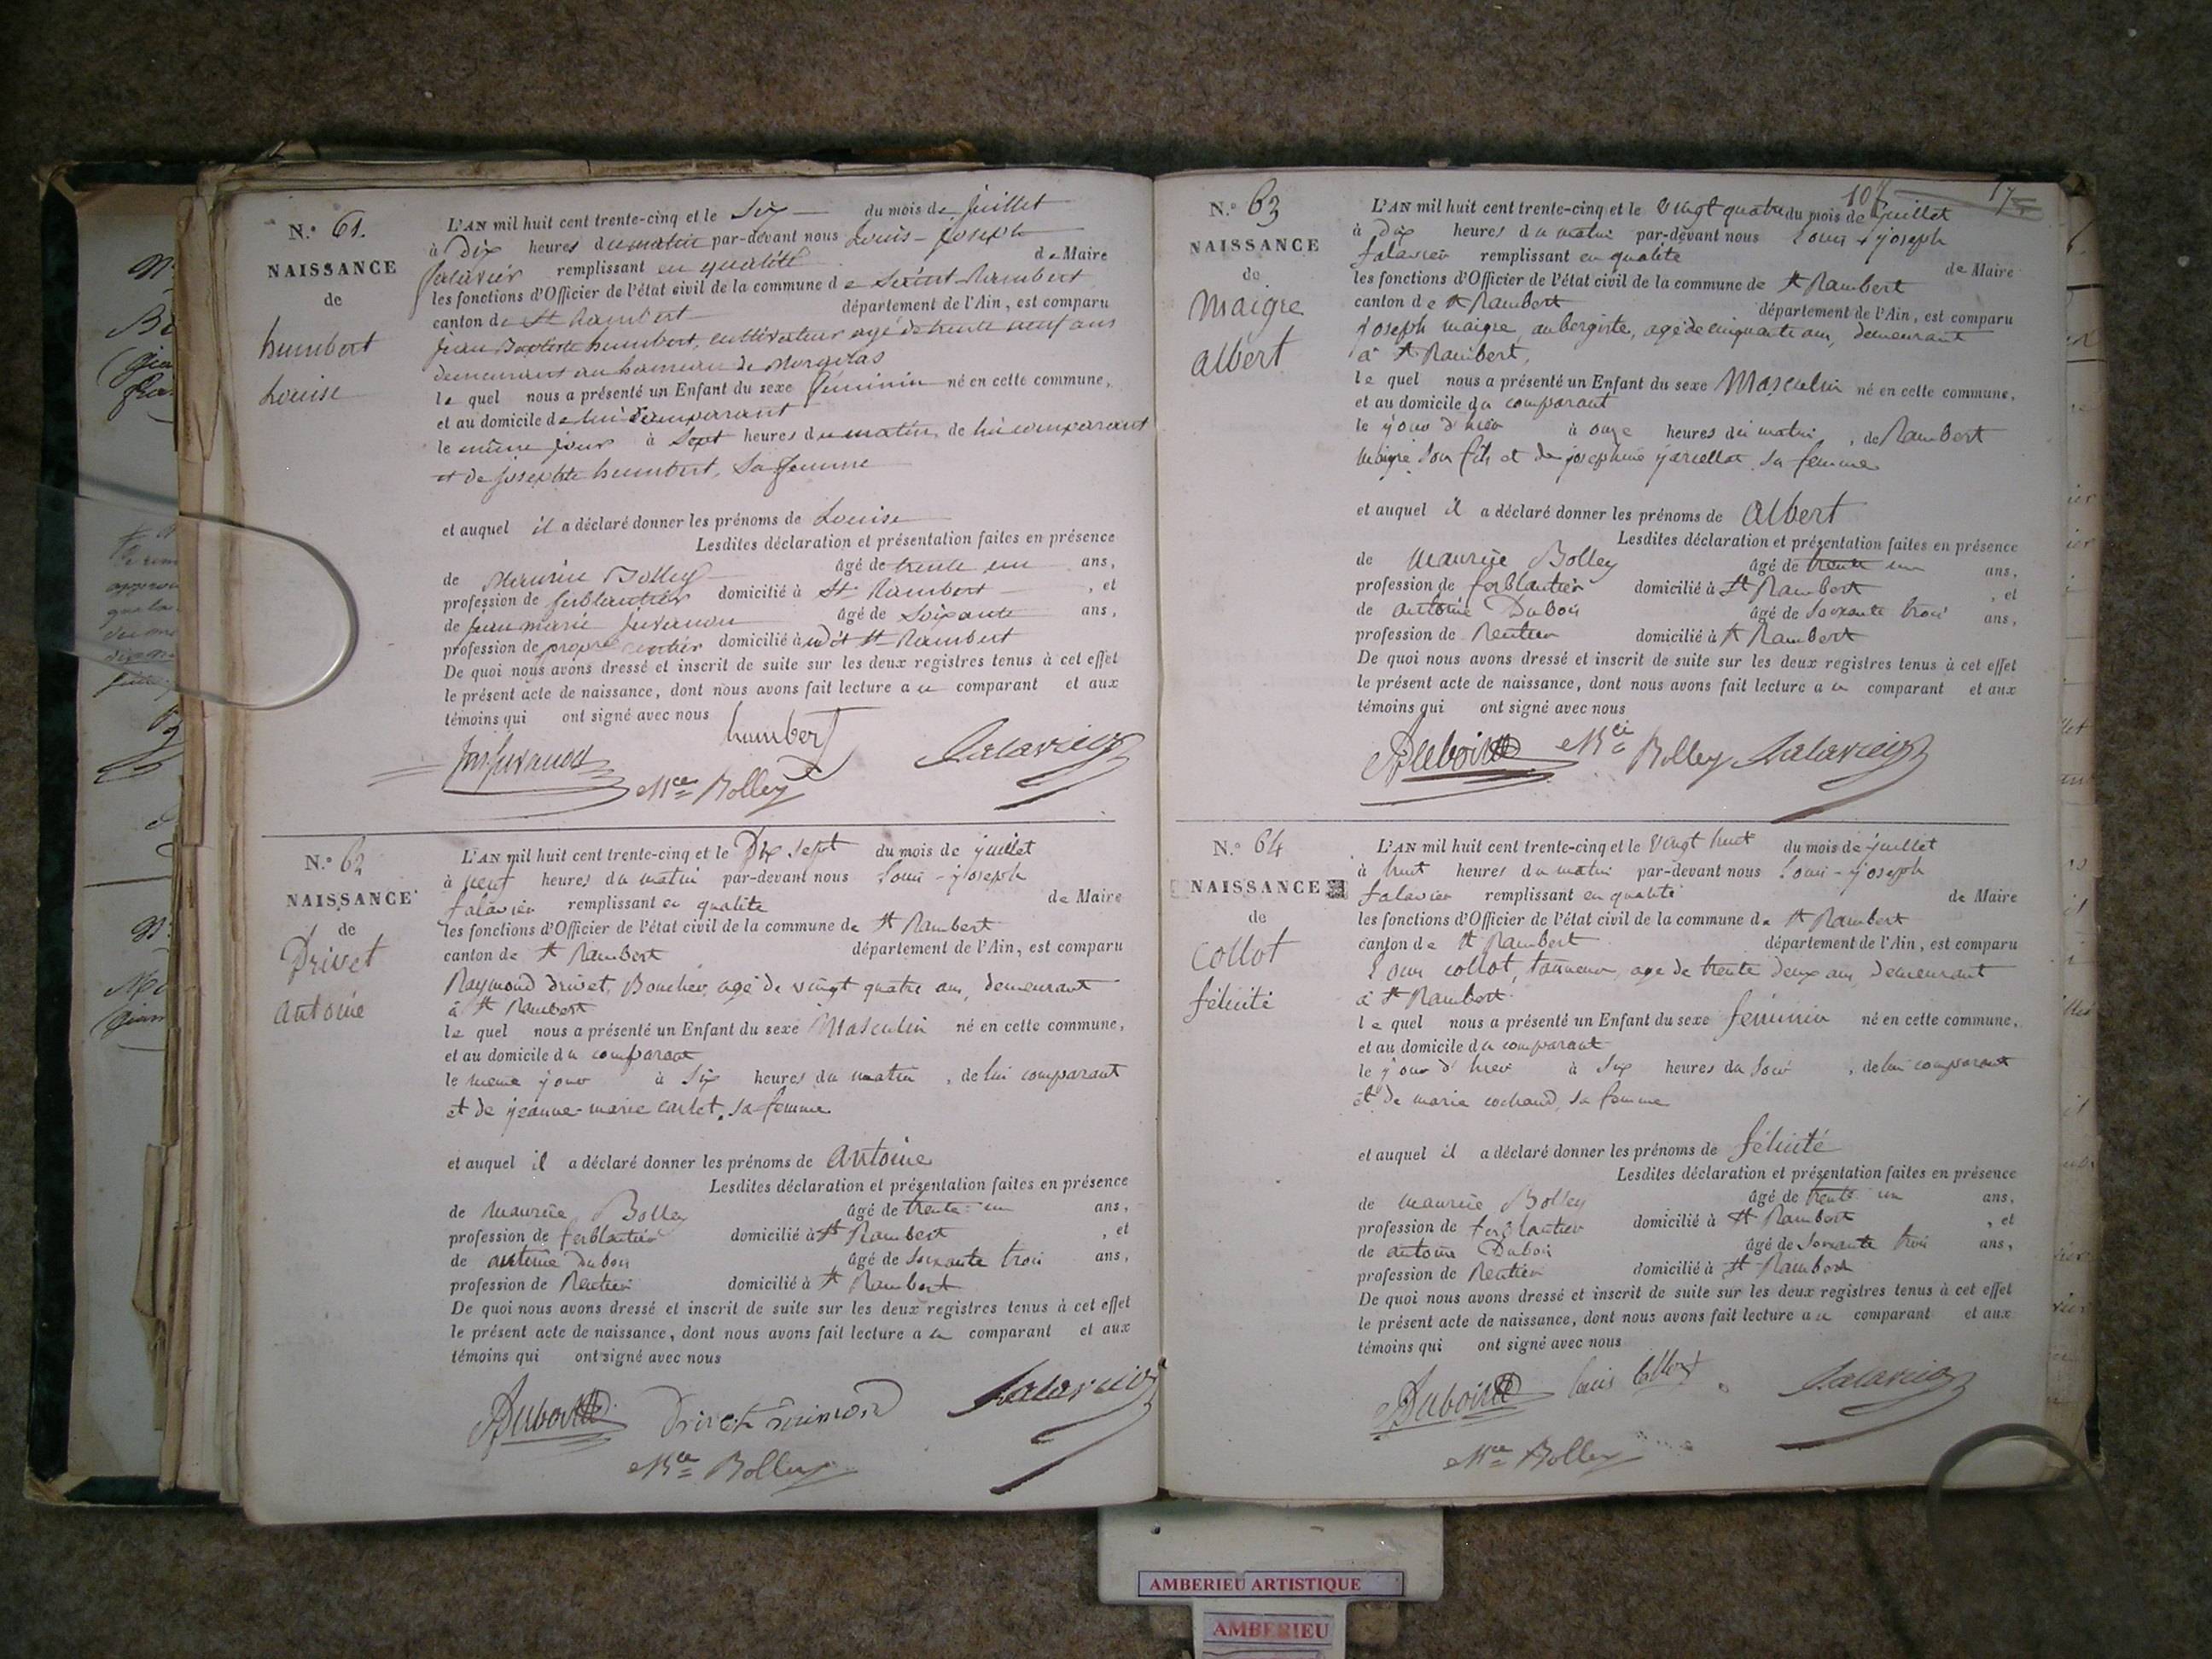 N.º 61.
NAISSANCE
de
humbert
Louise
L'AN mil huit cent trente-cinq et le Six du mois de Juillet
à Dix heures du matin par-devant nous Louis-Joseph
falavier remplissant en qualité de Maire
les fonctions d'Officier de l'état civil de la commune de Saint-Rambert
canton de St Rambert département de l'Ain, est comparu
Jean Baptiste humbert, cultivateur agé de trente neuf ans
demeurant au hameau de
le quel nous a présenté un Enfant du sexe féminin né en cette commune,
et au domicile de lui comparant
le même jour à Sept heures du matin, de lui comparant
et de josephte humbert, sa femme
et auquel il a déclaré donner les prénoms de Louise
Lesdites déclaration et présentation faites en présence
de Maurice Bolley âgé de trente un ans,
profession de ferblantier domicilié à St Rambert, et
de jean marie juvanon âgé de Soixante ans,
profession de domicilié à St Rambert
De quoi nous avons dressé et inscrit de suite sur les deux registres tenus à cet effet
le présent acte de naissance, dont nous avons fait lecture au comparant et aux
témoins qui ont signé avec nous
humbert
Mce Bolley
N.º 62
NAISSANCE
de
Drivet
antoine
L'AN mil huit cent trente-cinq et le Dix sept du mois de juillet
à neuf heures du matin par-devant nous Louis-joseph
falavier remplissant en qualité de Maire
les fonctions d'Officier de l'état civil de la commune de St Rambert
canton de St Rambert département de l'Ain, est comparu
Raymond drivet, Boucher, agé de vingt quatre ans, demeurant
à St Rambert
le quel nous a présenté un Enfant du sexe Masculin né en cette commune,
et au domicile du comparant
le meme jour à Six heures du matin, de lui comparant
et de jeanne-marie carlet, sa femme
et auquel il a déclaré donner les prénoms de antoine
Lesdites déclaration et présentation faites en présence
de maurice Bolley âgé de trente-un ans,
profession de ferblantier domicilié à St Rambert, et
de antoine dubois âgé de soixante trois ans,
profession de Rentier domicilié à St Rambert
De quoi nous avons dressé et inscrit de suite sur les deux registres tenus à cet effet
le présent acte de naissance, dont nous avons fait lecture au comparant et aux
témoins qui ont signé avec nous
Mce Bolley
N.º 63
NAISSANCE
de
Maigre
albert
L'AN mil huit cent trente-cinq et le Vingt quatre du mois de juillet
à dix heures du matin par-devant nous Louis-joseph
falavier remplissant en qualité de Maire
les fonctions d'Officier de l'état civil de la commune de St Rambert
canton de St Rambert département de l'Ain, est comparu
joseph maigre, aubergiste, agé de cinquante ans, demeurant
à St Rambert,
le quel nous a présenté un Enfant du sexe Masculin né en cette commune,
et au domicile du comparant
le jour d'hier à onze heures du matin, de Rambert
maigre son fils et de josephine jarcellot sa femme
et auquel il a déclaré donner les prénoms de albert
Lesdites déclaration et présentation faites en présence
de Maurice Bolley âgé de trente un ans,
profession de ferblantier domicilié à St Rambert, et
de antoine Dubois âgé de soixante trois ans,
profession de Rentier domicilié à St Rambert
De quoi nous avons dressé et inscrit de suite sur les deux registres tenus à cet effet
le présent acte de naissance, dont nous avons fait lecture au comparant et aux
témoins qui ont signé avec nous
Bolley
N.º 64
NAISSANCE
de
collot
félicité
L'AN mil huit cent trente-cinq et le Vingt huit du mois de juillet
à huit heures du matin par-devant nous Louis-joseph
falavier remplissant en qualité de Maire
les fonctions d'Officier de l'état civil de la commune de St Rambert
canton de St Rambert département de l'Ain, est comparu
Louis collot, tanneur, agé de trente deux ans, demeurant
à St Rambert
le quel nous a présenté un Enfant du sexe féminin né en cette commune,
et au domicile du comparant
le jour d'hier à six heures du soir, de lui comparant
et de marie cochaud, sa femme
et auquel il a déclaré donner les prénoms de félicité
Lesdites déclaration et présentation faites en présence
de maurice Bolley âgé de trente un ans,
profession de ferblantier domicilié à St Rambert, et
de antoine Dubois âgé de soixante trois ans,
profession de Rentier domicilié à St Rambert
De quoi nous avons dressé et inscrit de suite sur les deux registres tenus à cet effet
le présent acte de naissance, dont nous avons fait lecture au comparant et aux
témoins qui ont signé avec nous
louis collot
Mce Bolley
AMBERIEU ARTISTIQUE
AMBERIEU